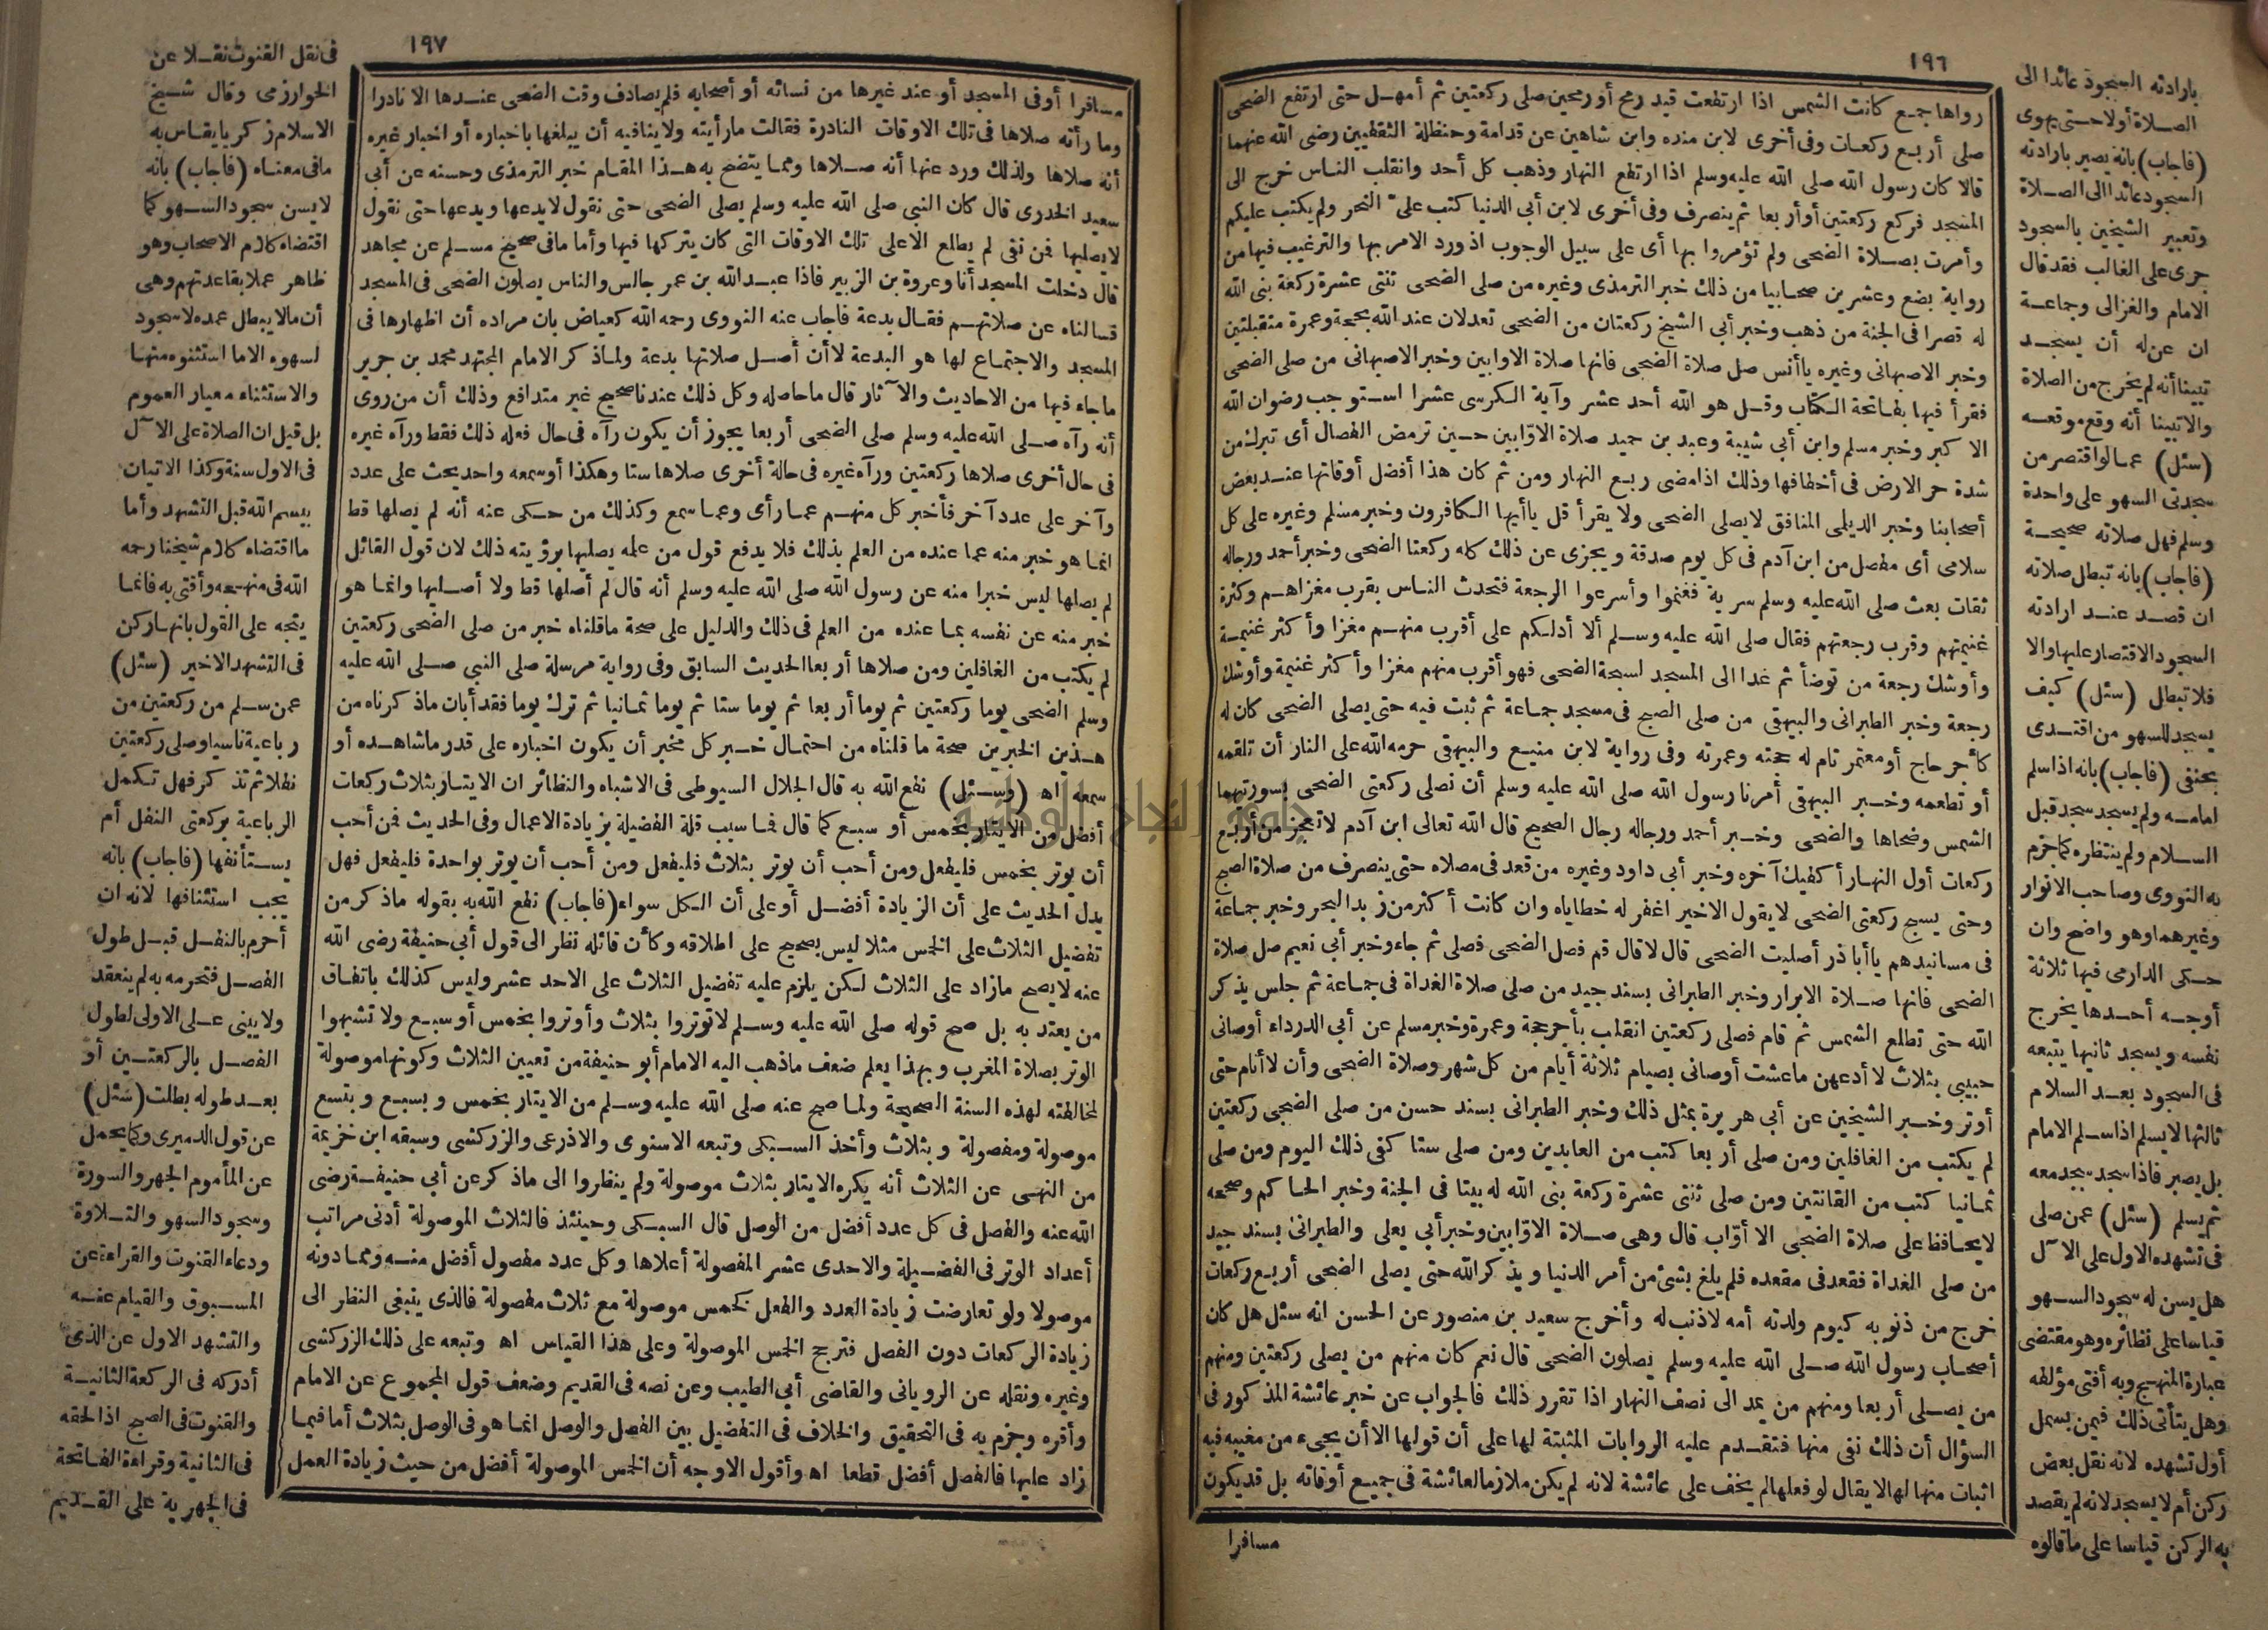 ١٩٦
رواها جمع كانت الشمس اذا ارتفعت قيد رمح أو رمحين صلى ركعتين ثم أمهل حتى ارتفع الضحى
صلى أربع ركعات وفى أخرى لابن منده وابن شاهين عن قدامة وحنظلة الثقفيين رضى الله عنهما
قالا كان رسول الله صلى الله عليه وسلم اذا ارتفع النهار وذهب كل أحد وانقلب الناس خرج الى
المسجد فركع ركعتين أو أربعا ثم ينصرف وفى أخرى لابن أبى الدنيا كتب علىّ النحر ولم يكتب عليكم
وأمرت بصلاة الضحى ولم تؤمروا بها أى على سبيل الوجوب اذ ورد الامر بها والترغيب فيها من
رواية بضع وعشرين صحابيا من ذلك خبر الترمذى وغيره من صلى الضحى ثنتى عشرة ركعة بنى الله
له قصرا فى الجنة من ذهب وخبر أبى الشيخ ركعتان من الضحى تعدلان عند الله بحجة وعمرة متقبلتين
وخبر الاصبهانى وغيره يا أنس صل صلاة الضحى فانها صلاة الاوابين وخبر الاصبهانى من صلى الضحى
فقرأ فيها بفاتحة الكتاب وقل هو الله أحد عشر وآية الكرسى عشرا استوجب رضوان الله
الاكبر وخبر مسلم وابن أبى شيبة وعبد بن حميد صلاة الاوّابين حين ترمض الفصال أى تبرك من
شدة حر الارض فى أخفافها وذلك اذا مضى ربع النهار ومن ثم كان هذا أفضل أوقاتها عند بعض
أصحابنا وخبر الديلمى المنافق لا يصلى الضحى ولا يقرأ قل يا أيها الكافرون وخبر مسلم وغيره على كل
سلامى أى مفصل من ابن آدم فى كل يوم صدقة ويجزى عن ذلك كله ركعتا الضحى وخبر أحمد ورجاله
ثقات بعث صلى الله عليه وسلم سرية فغنموا وأسرعوا الرجعة فتحدث الناس بقرب مغزاهم وكثرة
غنيمتهم وقرب رجعتهم فقال صلى الله عليه وسلم ألا أدلكم على أقرب منهم مغزا وأكثر غنيمة
وأوشك رجعة من توضأ ثم غدا الى المسجد لسبحة الضحى فهو أقرب منهم مغزا وأكثر غنيمة وأوشك
رجعة وخبر الطبرانى والبيهقى من صلى الصبح فى مسجد جماعة ثم ثبت فيه حتى يصلى الضحى كان له
كأجر حاج أو معتمر تام له حجته وعمرته وفى رواية لابن منيع والبيهقى حرمه الله على النار أن تلقمه
أو تطعمه وخبر البيهقى أمرنا رسول الله صلى الله عليه وسلم أن نصلى ركعتى الضحى بسورتيهما
الشمس وضحاها والضحى وخبر أحمد ورجاله رجال الصحيح قال الله تعالى ابن آدم لا تعجز من أربع
ركعات أول النهار أكفيك آخره وخبر أبى داود وغيره من قعد فى مصلاه حتى ينصرف من صلاة الصبح
وحتى يسبح ركعتى الضحى لا يقول الاخير اغفر له خطاياه وان كانت أكثر من زبد البحر وخبر جماعة
فى مسانيدهم يا أبا ذر أصليت الضحى قال لا قال قم فصل الضحى فصلى ثم جاء وخبر أبى نعيم صل صلاة
الضحى فانها صلاة الابرار وخبر الطبرانى بسند جيد من صلى صلاة الغداة فى جماعة ثم جلس يذكر
الله حتى تطلع الشمس ثم قام فصلى ركعتين انقلب بأجر حجة وعمرة وخبر مسلم عن أبى الدرداء أوصانى
حبيبى بثلاث لا أدعهن ما عشت أوصانى بصيام ثلاثة أيام من كل شهر وصلاة الضحى وأن لا أنام حتى
أوتر وخبر الشيخين عن أبى هريرة بمثل ذلك وخبر الطبرانى بسند حسن من صلى الضحى ركعتين
لم يكتب من الغافلين ومن صلى أربعا كتب من العابدين ومن صلى ستا كفى ذلك اليوم ومن صلى
ثمانيا كتب من القانتين ومن صلى ثنتى عشرة ركعة بنى الله له بيتا فى الجنة وخبر الحاكم وصححه
لا يحافظ على صلاة الضحى الا أوّاب قال وهى صلاة الاوّابين وخبر أبى يعلى والطبرانى بسند جيد
من صلى الغداة فقعد فى مقعده فلم يلغ بشئ من أمر الدنيا ويذكر الله حتى يصلى الضحى أربع ركعات
خرج من ذنوبه كيوم ولدته أمه لا ذنب له وأخرج سعيد بن منصور عن الحسن انه سئل هل كان
أصحاب رسول الله صلى الله عليه وسلم يصلون الضحى قال نعم كان منهم من يصلى ركعتين ومنهم
من يصلى أربعا ومنهم من يمد الى نصف النهار اذا تقرر ذلك فالجواب عن خبر عائشة المذكور فى
السؤال أن ذلك نفى منها فتقدم عليه الروايات المثبتة لها على أن قولها الا أن يجىء من مغيبه فيه
اثبات منها لها لا يقال لو فعلها لم يخف على عائشة لانه لم يكن ملازما لعائشة فى جميع أوقاته بل قد يكون
مسافرا
بارادته السجود عائدا الى
الصلاة أولا حتى يهوى
(فاجاب) بانه يصير بارادته
السجود عائدا الى الصلاة
وتعبير الشيخين بالسجود
جرى على الغالب فقد قال
الامام والغزالى وجماعة
ان عن له أن يسجد
تبينا أنه لم يخرج من الصلاة
والا تبينا أنه وقع موقعه
(سئل) عما لو اقتصر من
سجدتى السهو على واحدة
وسلم فهل صلاته صحيحة
(فاجاب) بانه تبطل صلاته
ان قصد عند ارادته
السجود الاقتصار عليها والا
فلا تبطل (سئل) كيف
يسجد للسهو من اقتدى
بحنفى (فاجاب) بانه اذا سلم
امامه ولم يسجد سجد قبل
السلام ولم ينتظره كما جزم
به النووى وصاحب الانوار
وغيرهما وهو واضح وان
حكى الدارمى فيها ثلاثة
أوجه أحدها يخرج
نفسه ويسجد ثانيها يتبعه
فى السجود بعد السلام
ثالثها لا يسلم اذا سلم الامام
بل يصبر فاذا سجد سجد معه
ثم يسلم (سئل) عمن صلى
فى تشهده الاول على الآل
هل يسن له سجود السهو
قياسا على نظائره وهو مقتضى
عبارة المنهج وبه أفتى مؤلفه
وهل يتأتى ذلك فيمن بسمل
أول تشهده لانه نقل بعض
ركن أم لا يسجد لانه لم يقصد
به الركن قياسا على ما قالوه
١٩٧
مسافرا أو فى المسجد أو عند غيرها من نسائه أو أصحابه فلم يصادف وقت الضحى عندها الا نادرا
وما رأته صلاها فى تلك الاوقات النادرة فقالت ما رأيته ولا ينافيه أن يبلغها باخباره أو اخبار غيره
أنه صلاها ولذلك ورد عنها أنه صلاها ومما يتضح به هذا المقام خبر الترمذى وحسنه عن أبى
سعيد الخدرى قال كان النبى صلى الله عليه وسلم يصلى الضحى حتى نقول لا يدعها ويدعها حتى نقول
لا يصليها فمن نفى لم يطلع الا على تلك الاوقات التى كان يتركها فيها وأما ما فى صحيح مسلم عن مجاهد
قال دخلت المسجد أنا وعروة بن الزبير فاذا عبد الله بن عمر جالس والناس يصلون الضحى فى المسجد
فسالناه عن صلاتهم فقال بدعة فاجاب عنه النووى رحمه الله كعياض بان مراده أن اظهارها فى
المسجد والاجتماع لها هو البدعة لا أن أصل صلاتها بدعة ولما ذكر الامام المجتهد محمد بن جرير
ما جاء فيها من الاحاديث والآثار قال ما حاصله وكل ذلك عندنا صحيح غير متدافع وذلك أن من روى
أنه رآه صلى الله عليه وسلم صلى الضحى أربعا يجوز أن يكون رآه فى حال فعله ذلك فقط ورآه غيره
فى حال أخرى صلاها ركعتين ورآه غيره فى حالة أخرى صلاها ستا وهكذا أو سمعه واحد يحث على عدد
وآخر على عدد آخر فأخبر كل منهم عما رأى وعما سمع وكذلك من حكى عنه أنه لم يصلها قط
انما هو خبر منه عما عنده من العلم بذلك فلا يدفع قول من علمه يصليها برؤيته ذلك لان قول القائل
لم يصلها ليس خبرا منه عن رسول الله صلى الله عليه وسلم أنه قال لم أصلها قط ولا أصليها وانما هو
خبر منه عن نفسه بما عنده من العلم فى ذلك والدليل على صحة ما قلناه خبر من صلى الضحى ركعتين
لم يكتب من الغافلين ومن صلاها أربعا الحديث السابق وفى رواية مرسلة صلى النبى صلى الله عليه
وسلم الضحى يوما ركعتين ثم يوما أربعا ثم يوما ستا ثم يوما ثمانيا ثم ترك يوما فقد أبان ما ذكرناه من
هذين الخبرين صحة ما قلناه من احتمال خبر كل مخبر أن يكون اخباره على قدر ما شاهده أو
سمعه اه (وسئل) نفع الله به قال الجلال السيوطى فى الاشباه والنظائر ان الايتار بثلاث ركعات
أفضل من الايتار بخمس أو سبع كما قال فما سبب قلة الفضيلة بزيادة الاعمال وفى الحديث فمن أحب
أن يوتر بخمس فليفعل ومن أحب أن يوتر بثلاث فليفعل ومن أحب أن يوتر بواحدة فليفعل فهل
يدل الحديث على أن الزيادة أفضل أو على أن الكل سواء (فاجاب) نفع الله به بقوله ما ذكر من
تفضيل الثلاث على الخمس مثلا ليس بصحيح على اطلاقه وكأن قائله نظر الى قول أبى حنيفة رضى الله
عنه لا يصح ما زاد على الثلاث لكن يلزم عليه تفضيل الثلاث على الاحد عشر وليس كذلك باتفاق
من يعتد به بل صح قوله صلى الله عليه وسلم لا توتروا بثلاث وأوتروا بخمس أو سبع ولا تشبهوا
الوتر بصلاة المغرب وبهذا يعلم ضعف ما ذهب اليه الامام أبو حنيفة من تعيين الثلاث وكونها موصولة
لمخالفته لهذه السنة الصحيحة ولما صح عنه صلى الله عليه وسلم من الايتار بخمس وبسبع وبتسع
موصولة ومفصولة وبثلاث وأخذ السبكى وتبعه الاسنوى والاذرعى والزركشى وسبقه ابن خزيمة
من النهى عن الثلاث أنه يكره الايتار بثلاث موصولة ولم ينظروا الى ما ذكر عن أبى حنيفة رضى
الله عنه والفصل فى كل عدد أفضل من الوصل قال السبكى وحينئذ فالثلاث الموصولة أدنى مراتب
أعداد الوتر فى الفضيلة والاحدى عشر المفصولة أعلاها وكل عدد مفصول أفضل منه ومما دونه
موصولا ولو تعارضت زيادة العدد والفعل كخمس موصولة مع ثلاث مفصولة فالذى ينبغى النظر الى
زيادة الركعات دون الفصل فترجح الخمس الموصولة وعلى هذا القياس اه وتبعه على ذلك الزركشى
وغيره ونقله عن الرويانى والقاضى أبى الطيب وعن نصه فى القديم وضعف قول المجموع عن الامام
وأقره وجزم به فى التحقيق والخلاف فى التفضيل بين الفصل والوصل انما هو فى الوصل بثلاث أما فيما
زاد عليها فالفصل أفضل قطعا اه وأقول الاوجه أن الخمس الموصولة أفضل من حيث زيادة العمل
فى نقل القنوت نقلا عن
الخوارزمى وقال شيخ
الاسلام زكريا يقاس به
ما فى معناه (فاجاب) بانه
لا يسن سجود السهو كما
اقتضاه كلام الاصحاب وهو
ظاهر عملا بقاعدتهم وهى
أن ما لا يبطل عمده لا سجود
لسهوه الا ما استثنوه منها
والاستثناء معيار العموم
بل قيل ان الصلاة على الآل
فى الاول سنة وكذا الاتيان
ببسم الله قبل التشهد وأما
ما اقتضاه كلام شيخنا رحمه
الله فى منهجه وأفتى به فانما
يتجه على القول بانها ركن
فى التشهد الاخير (سئل)
عمن سلم من ركعتين من
رباعية ناسيا وصلى ركعتين
نفلا ثم تذكر فهل تكمل
الرباعية بركعتى النفل أم
يستأنفها (فاجاب) بانه
يجب استئنافها لانه ان
أحرم بالنفل قبل طول
الفصل فتحرمه به لم ينعقد
ولا يبنى على الاولى لطول
الفصل بالركعتين أو
بعد طوله بطلت (سئل)
عن قول الدميرى وكما يحمل
عن المأموم الجهر والسورة
وسجود السهو والتلاوة
ودعاء القنوت والقراءة عن
المسبوق والقيام عنه
والتشهد الاول عن الذى
أدركه فى الركعة الثانية
والقنوت فى الصبح اذا لحقه
فى الثانية وقراءة الفاتحة
فى الجهرية على القديم
جامعة النجاح الوطنية